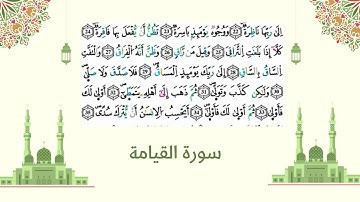 إِلَىٰ رَبِّهَا نَاظِرَةٌ ۝22 وَوُجُوهٌ يَوْمَئِذٍ بَاسِرَةٌ ۝23 تَظُنُّ أَن يُفْعَلَ بِهَا فَاقِرَةٌ ۝24
كَلَّا إِذَا بَلَغَتِ التَّرَاقِيَ ۝25 وَقِيلَ مَن رَّاقٍ ۝26 وَظَنَّ أَنَّهُ الْفِرَاقُ ۝27 وَالْتَفَّتِ
السَّاقُ بِالسَّاقِ ۝28 إِلَىٰ رَبِّكَ يَوْمَئِذٍ الْمَسَاقُ ۝29 فَلَا صَدَّقَ وَلَا صَلَّىٰ
۝30 وَلَٰكِن كَذَّبَ وَتَوَلَّىٰ ۝31 ثُمَّ ذَهَبَ إِلَىٰ أَهْلِهِ يَتَمَطَّىٰ ۝32 أَوْلَىٰ لَكَ
فَأَوْلَىٰ ۝33 ثُمَّ أَوْلَىٰ لَكَ فَأَوْلَىٰ ۝34 أَيَحْسَبُ الْإِنسَانُ أَن يُتْرَكَ سُدًى ۝35
سورة القيامة